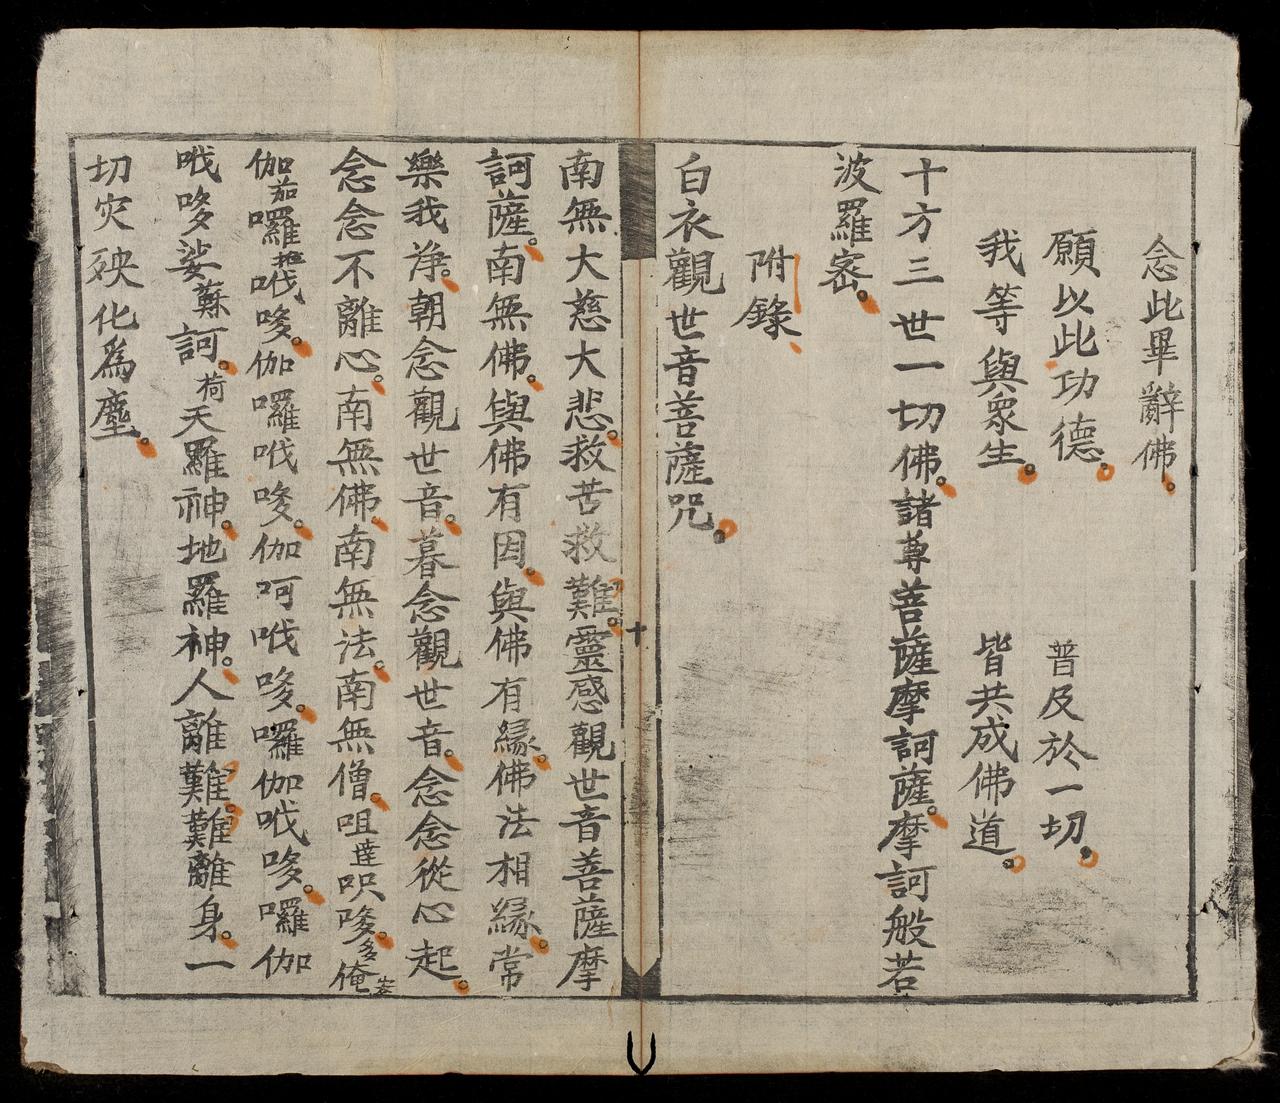 念此畢辭佛。
願以此功德。　普及於一切。
我等與衆生。　皆共成佛道。
十方三世一切佛。諸尊菩薩摩訶薩。摩訶般若
波羅密。
附錄
白衣觀世音菩薩咒。
十
南無大慈大悲。救苦救難。靈感觀世音菩薩摩
訶薩。南無佛。與佛有因。與佛有緣。佛法相緣。常
樂我淨。朝念觀世音。暮念觀世音。念念從心起。
念念不離心。南無佛。南無法。南無僧。咀達呎哆多。俺安
伽茄囉地哦哆。伽囉哦哆。伽呵哦哆。囉伽哦哆。囉伽
哦哆娑蘇訶。荷天羅神。地羅神。人離難。難離身。一
切灾殃化為塵。